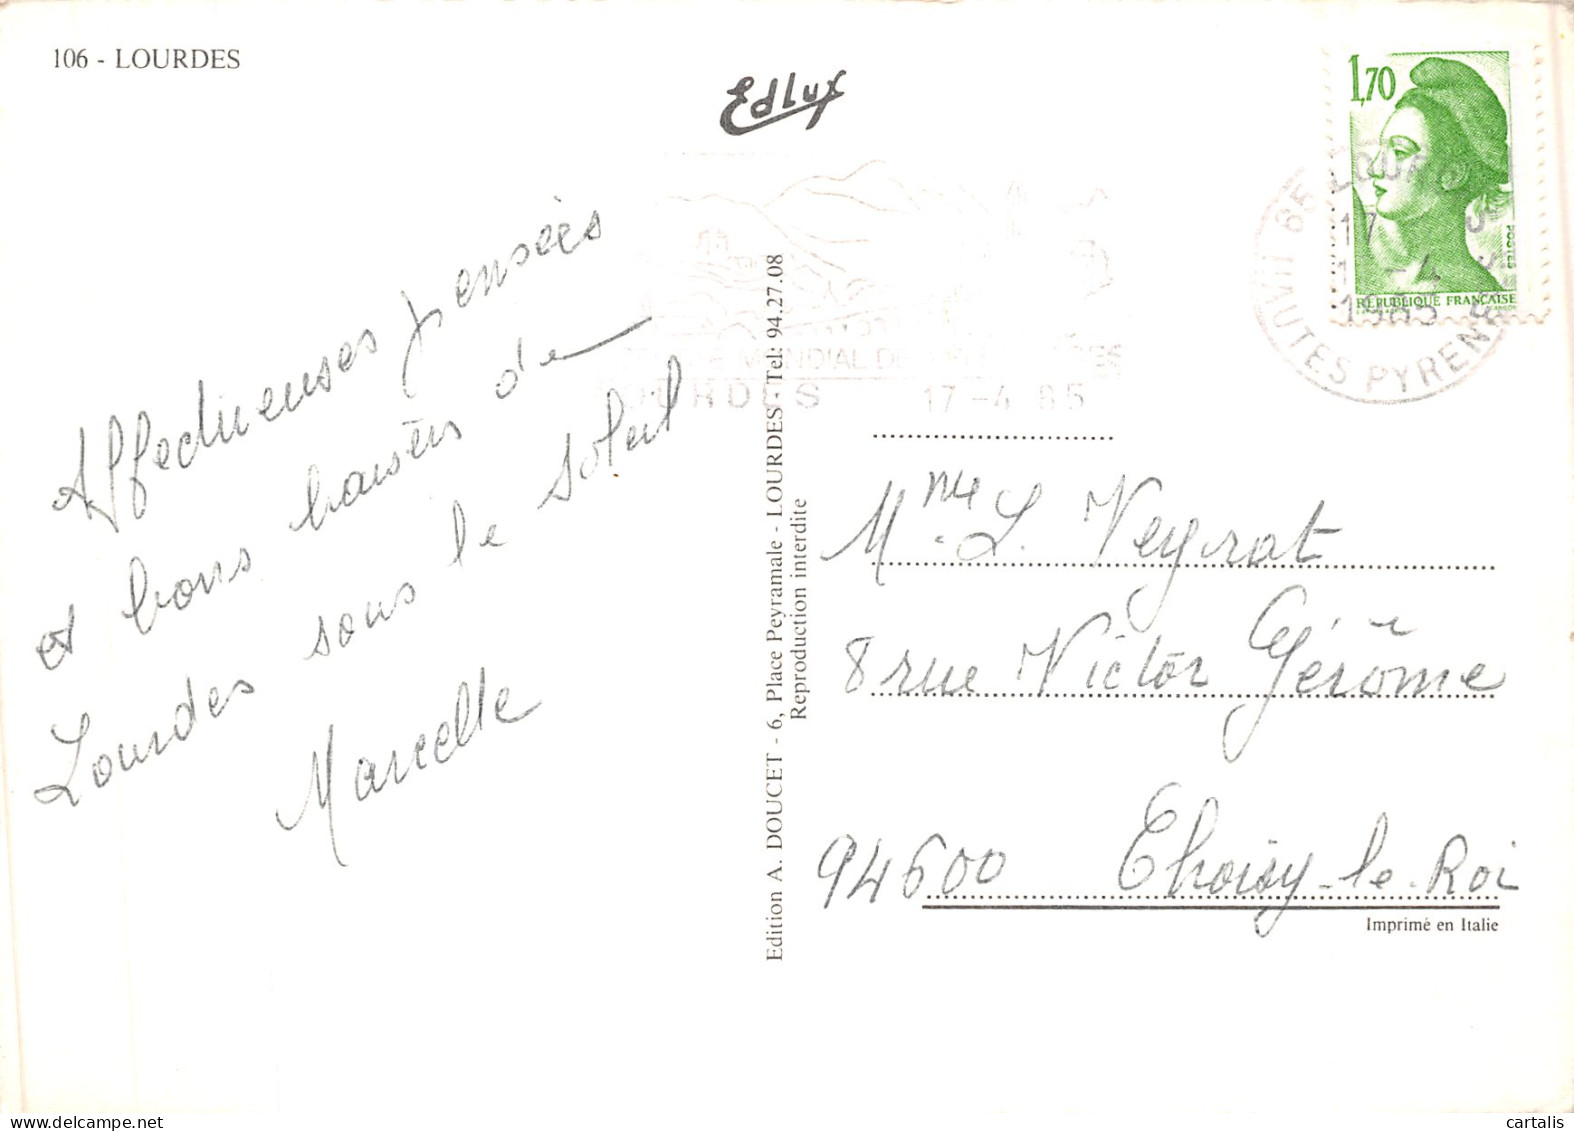 106 - LOURDES
Edlux
1,70
POSTES
RÉPUBLIQUE FRANÇAISE
65 LOURDES
17
17-4
1985
HAUTES PYRENEES
MONDIAL DE
LOURDES 17-4 85
Affectueuses pensées
et bons baisers de
Lourdes sous le soleil
Marcelle
Edition A. DOUCET - 6, Place Peyramale - LOURDES - Tel: 94.27.08
Reproduction interdite
Mme. L. Veyrat
8 rue Victor Gérôme
94600 Choisy-le-Roi
Imprimé en Italie
cartalis
cartalis sur Delcampe.net